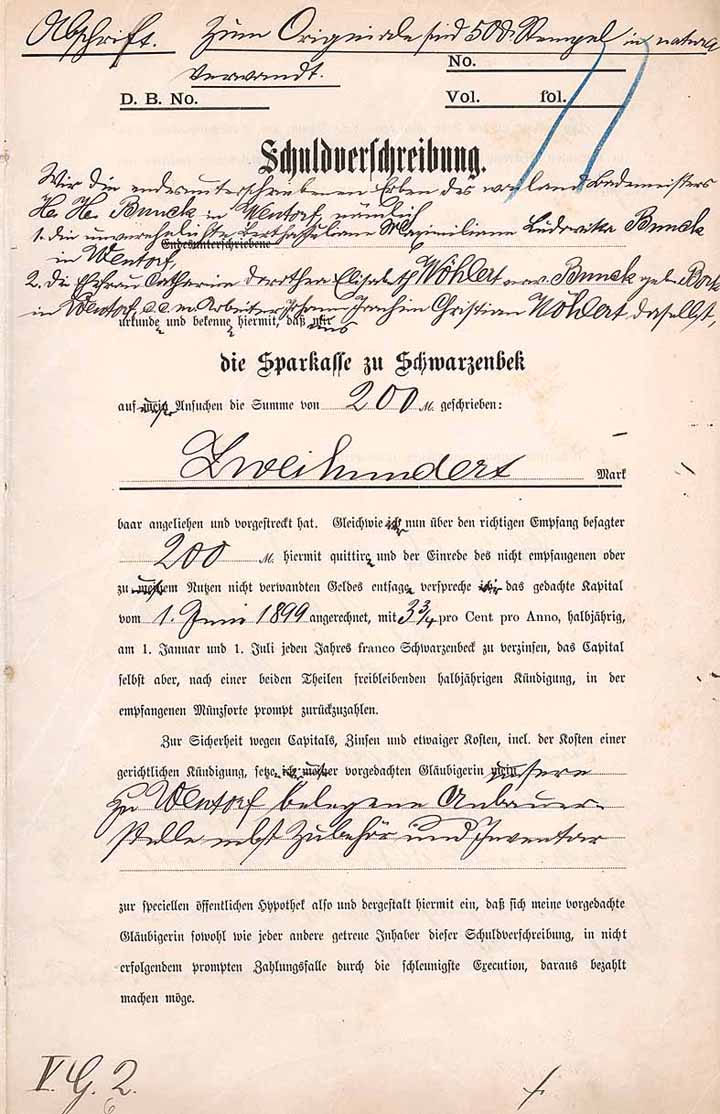 Abschrift. Zum Originale sind 50 d. Stempel in natura
verwandt.
No.
D. B. No.
Vol. fol.
Schuldverschreibung.
Wir die endesunterschriebenen Erben des weiland Bademeisters
H. H. Bunck in Wentorf, nämlich
1. die unverehelichte Maximiliane Ludowika Bunck
Endesunterschriebene
in Wentorf,
2. die Ehefrau Catharina Dorothea Elisabeth Wöhlert verw. Bunck geb.
in Wentorf, c. c. m. Arbeiter Johann Joachim Christian Wöhlert daselbst,
urkunde und bekenne hiermit, daß uns
die Sparkasse zu Schwarzenbek
auf Ansuchen die Summe von 200 M. geschrieben:
Zweihundert Mark
baar angeliehen und vorgestreckt hat. Gleichwie nun über den richtigen Empfang besagter
200 M. hiermit quittire und der Einrede des nicht empfangenen oder
zu Nutzen nicht verwandten Geldes entsage, verspreche das gedachte Kapital
vom 1. Juni 1899 angerechnet, mit 3 3/4 pro Cent pro Anno, halbjährig,
am 1. Januar und 1. Juli jeden Jahres franco Schwarzenbeck zu verzinsen, das Capital
selbst aber, nach einer beiden Theilen freibleibenden halbjährigen Kündigung, in der
empfangenen Münzsorte prompt zurückzuzahlen.
Zur Sicherheit wegen Capitals, Zinsen und etwaiger Kosten, incl. der Kosten einer
gerichtlichen Kündigung, setze vorgedachten Gläubigerin unsere
zu Wentorf belegene Anbauer-
stelle nebst Zubehör und Inventar
zur speciellen öffentlichen Hypothek also und dergestalt hiermit ein, daß sich meine vorgedachte
Gläubigerin sowohl wie jeder andere getreue Inhaber dieser Schuldverschreibung, in nicht
erfolgendem prompten Zahlungsfalle durch die schleunigste Execution, daraus bezahlt
machen möge.
V. G. 2.